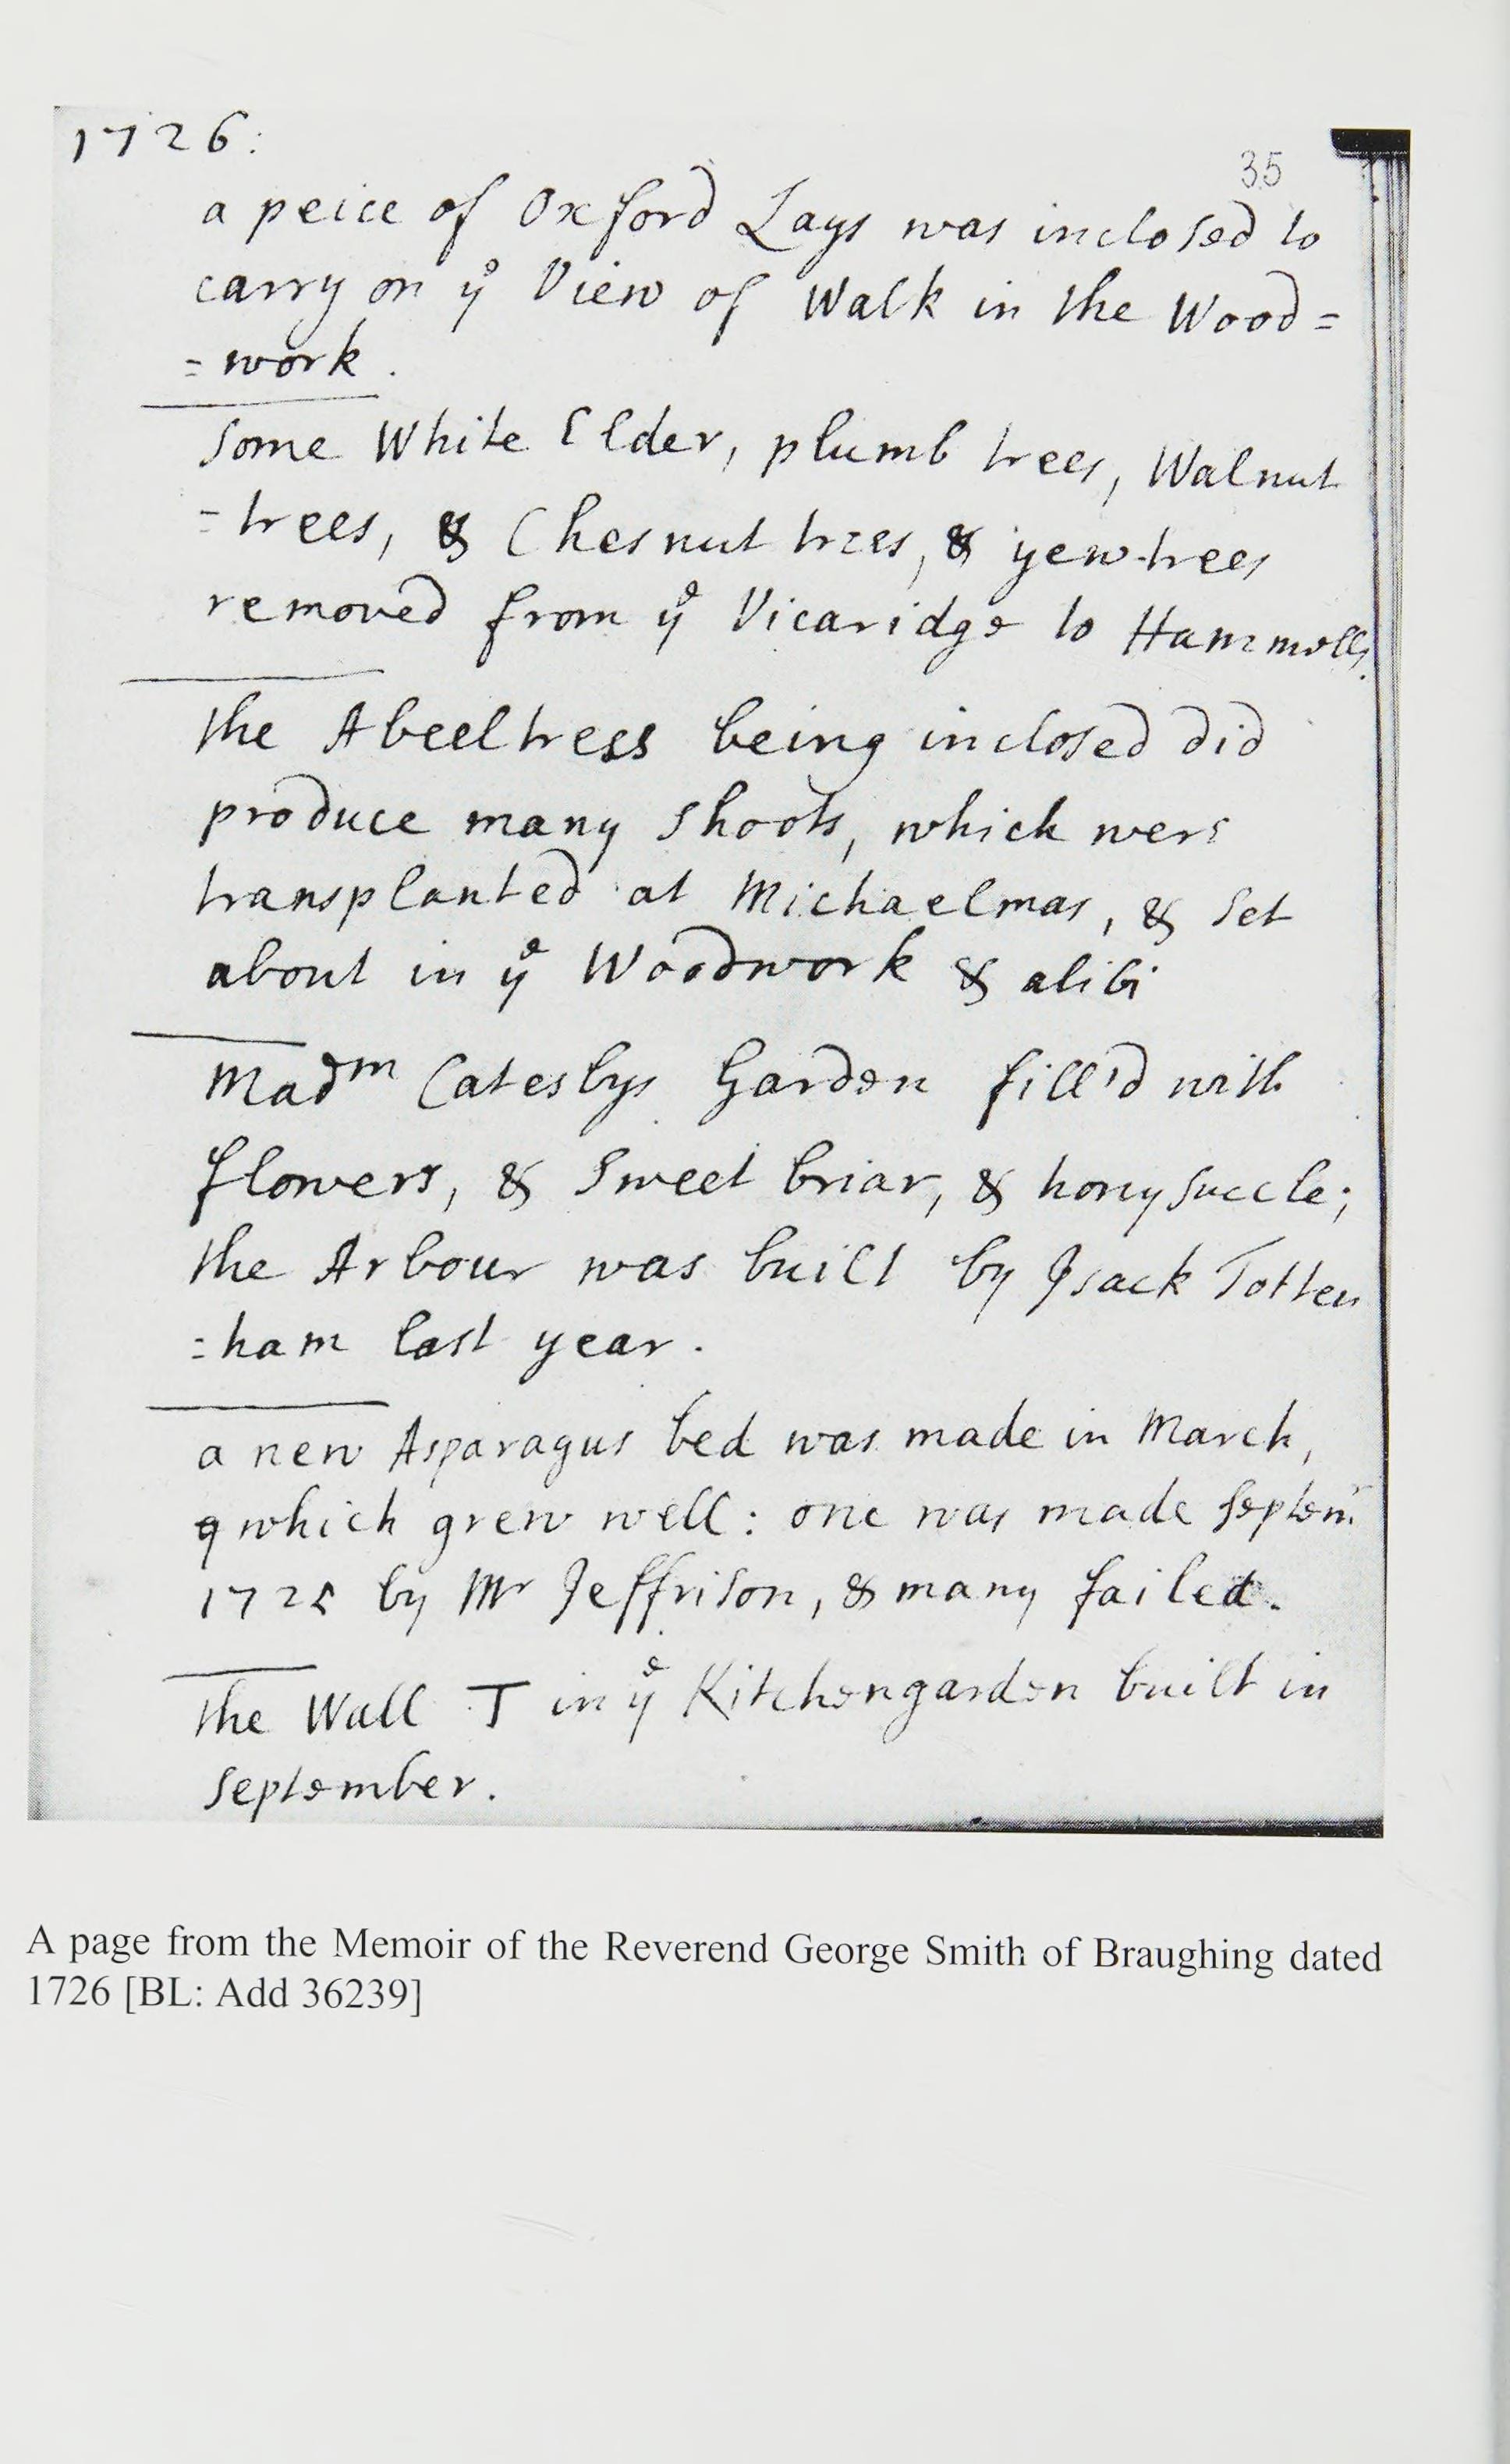 1726:
35
a peice of Oxford Lays was inclosed to
carry on yᵉ View of Walk in the Wood=
=work.
Some White Elder, plumb trees, Walnut
=trees, & Chesnut trees, & yew trees
removed from yᵉ Vicaridge to Hammells.
the Abeeltrees being inclosed did
produce many shoots, which were
transplanted at Michaelmas, & set
about in yᵉ Woodwork & alibi
Madᵐ Catesbys Garden fill'd with
flowers, & Sweet briar, & honysuccle;
the Arbour was built by Isack Totten
=ham last year.
a new Asparagus bed was made in March,
which grew well: one was made Septemʳ
1725 by Mʳ Jeffrison, & many failed.
the Wall T in yᵉ Kitchengarden built in
September.
A page from the Memoir of the Reverend George Smith of Braughing dated
1726 [BL: Add 36239]